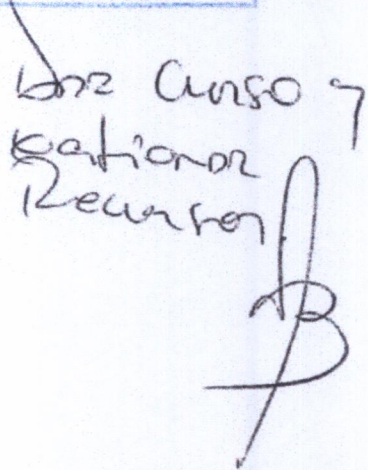 Dar Curso y
gestionar
Recursos